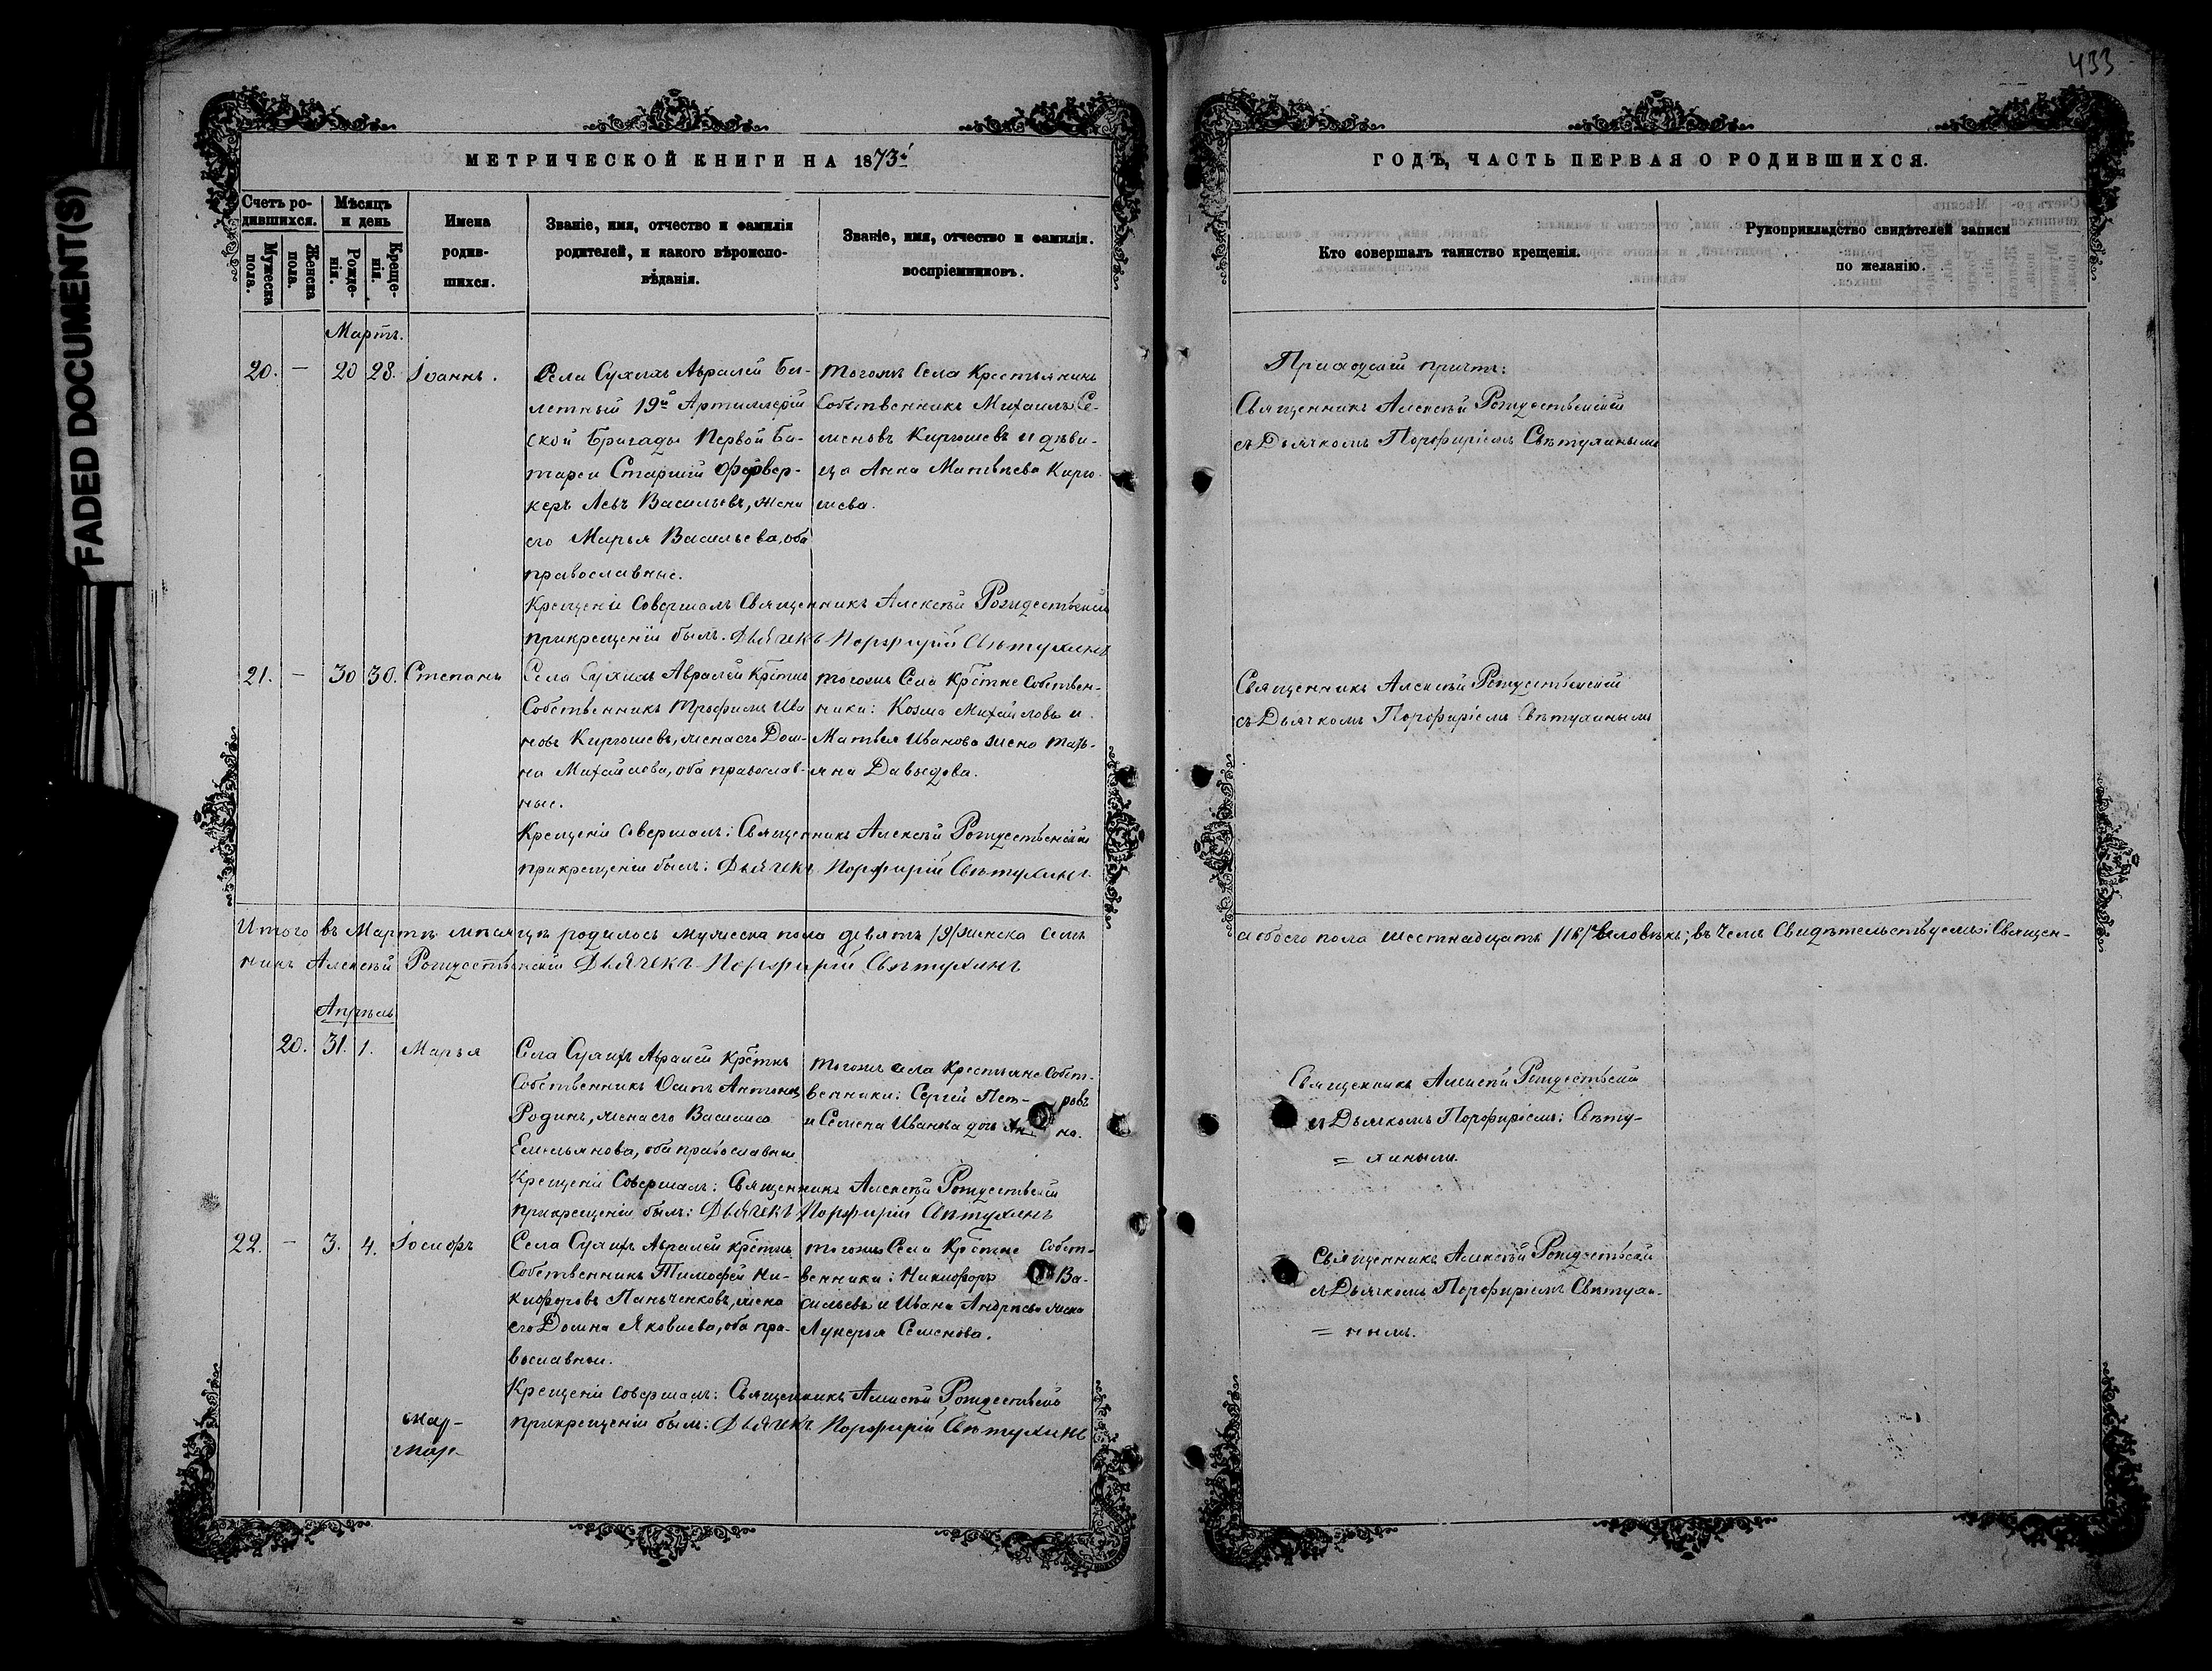 433
FADED DOCUMENT(S)
МЕТРИЧЕСКОЙ КНИГИ НА 1873й
ГОДЪ, ЧАСТЬ ПЕРВАЯ О РОДИВШИХСЯ.
Счетъ ро-
дившихся.
Мужеска
пола.
Женска
пола.
Мѣсяцъ
и день
Рожде-
нія.
Креще-
нія.
Имена
родив-
шихся.
Званіе, имя, отчество и фамилія
родителей, и какого вѣроиспо-
вѣданія.
Званіе, имя, отчество и фамилія.
воспріемниковъ.
Кто совершалъ таинство крещенія.
Рукоприкладство свидѣтелей записи
по желанію.
Мартъ.
20. — 20 28. Іоаннъ.
Села Сухихъ Авралей Би-
летный 19й Артиллерій
ской Бригады Первой Ба-
тареи Старшій Фервер-
керъ Левъ Васильевъ, жена
его Марья Васильева, оба
православные.
Тогожъ Села Крестьянинъ
Собственникъ Михаилъ Се-
меновъ Киргошевъ и дѣви-
ца Анна Матвѣева Кирго-
шева.
Приходскій причтъ:
Священникъ Алексѣй Рождественскій
съ Дьячкомъ Порфиріемъ Свѣтухинымъ
Крещеніе Совершалъ Священникъ Алексѣй Рождественскій
при крещеніи былъ. Дьячекъ Порфирій Свѣтухинъ
21. — 30 30. Степанъ
Села Сухихъ Авралей Крестнъ
Собственникъ Трофимъ Ива
новъ Киргошевъ, жена его Дом-
на Михайлова, оба православ-
ные.
Тогожъ Села Крстне Собствен-
ники: Козма Михайловъ и
Матвея Иванова жена Тать-
яна Давыдова.
Священникъ Алексѣй Рождественскій
съ Дьячкомъ Порфиріемъ Свѣтухинымъ
Крещеніе Совершалъ: Священникъ Алексѣй Рождественскій
при крещеніи былъ: Дьячекъ Порфирій Свѣтухинъ
Итого въ Мартѣ мѣсяцѣ родилось мужеска пола девять /9/ женска семь
а обоего пола шестнадцать /16/ человѣкъ; въ чемъ Свидѣтельствуемъ: Священ-
никъ Алексѣй Рождественскій Дьячекъ Порфирій Свѣтухинъ
Апрѣль
20. 31. 1. Марья
Села Сухихъ Авралей Крстнъ
Собственникъ Осипъ Антоновъ
Родинъ, жена его Василиса
Емельянова, оба православные
Тогожъ села Крестьяне Собст-
венники: Сергій Пет- ровъ
и Семена Иванова дочь Ан- на.
Священникъ Алексѣй Рождественскій
съ Дьячкомъ Порфиріемъ: Свѣту-
= хинымъ.
Крещеніе Совершалъ: Священникъ Алексѣй Рождественскій
при крещеніи былъ: Дьячекъ Порфирій Свѣтухинъ
22. — 3. 4. Іосифъ
Села Сухихъ Авралей Крстнъ
Собственникъ Тимофей Ни-
кифоровъ Паньченковъ, жена
его Домна Яковлева, оба пра-
вославные.
Тогожъ Села Крстне Собст-
венники: Никифоръ Ва-
сильевъ и Ивана Андреева жена
Лукерья Семенова.
Священникъ Алексѣй Рождественскій
съ Дьячкомъ Порфиріемъ Свѣтухи-
= нымъ.
Крещеніе Совершалъ: Священникъ Алексѣй Рождественскій
при крещеніи былъ: Дьячекъ Порфирій Свѣтухинъ